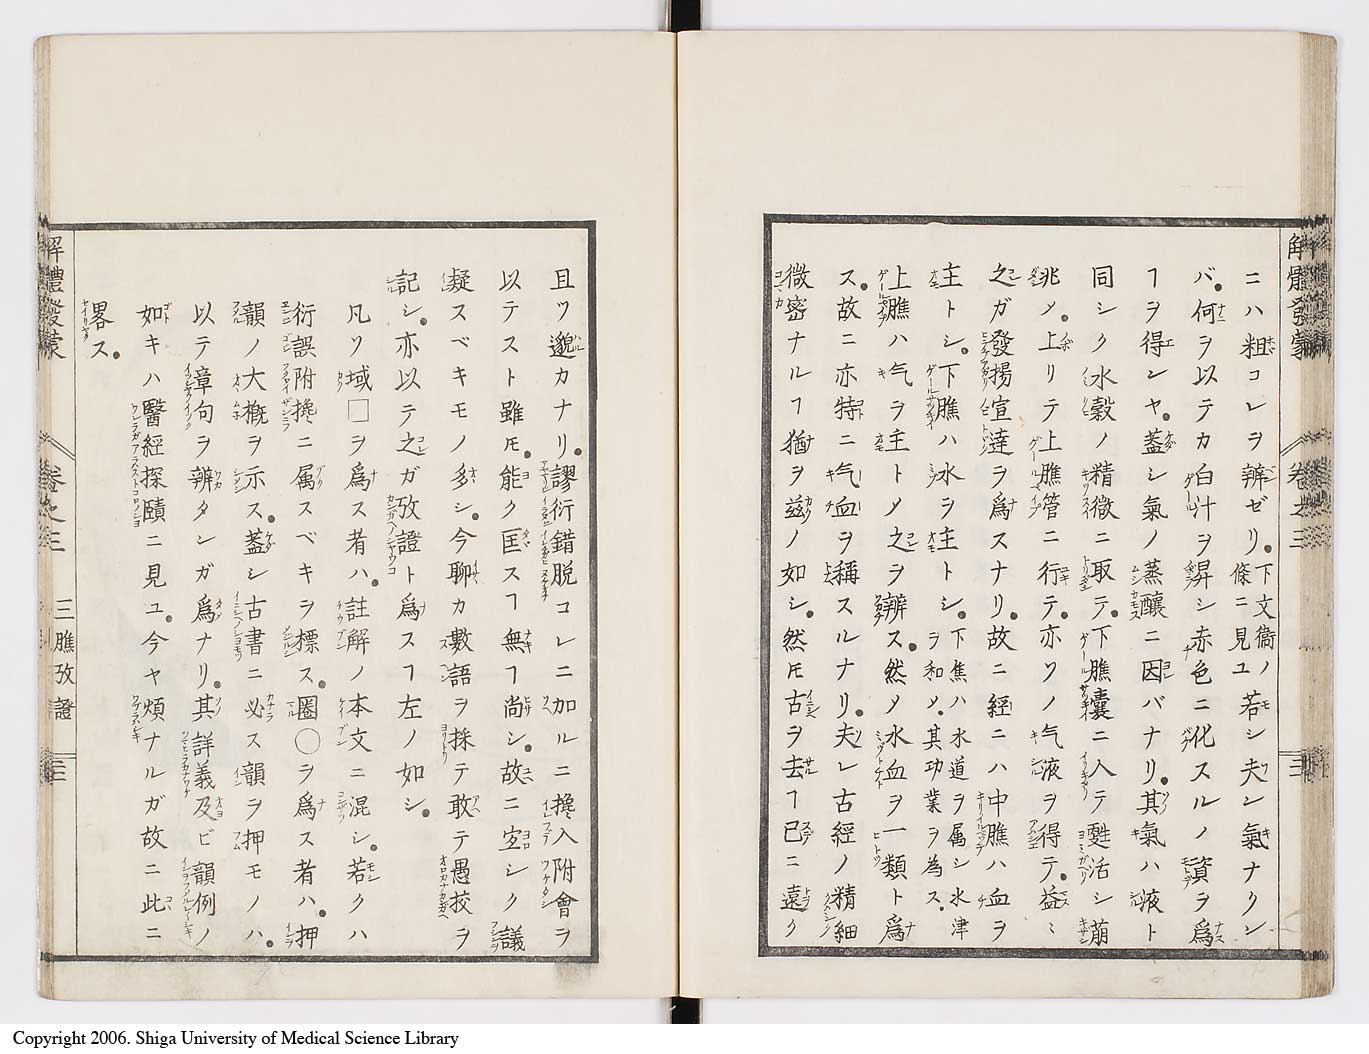 ニハ粗コレヲ辨ゼリ。下文衞ノ條ニ見ユ若シ夫レ氣ナクン
バ。何ヲ以テカ白汁ヲ昇シ赤色ニ化スルノ資ヲ爲
ヿヲ得ンヤ。蓋シ氣ノ蒸釀ニ因バナリ。其氣ハ液ト
同シク水穀ノ精微ニ取テ。下膲嚢ニ入テ甦活シ萠
兆メ。上リテ上膲管ニ行テ。亦ソノ气液ヲ得テ。益〻
之ガ發揚宣達ヲ爲スナリ。故ニ經ニハ中膲ハ血ヲ
主トシ。下膲ハ水ヲ主トシ。下焦ハ水道ヲ属シ水津ヲ和メ。其功業ヲ為ス。
上膲ハ气ヲ主トメ之ヲ辨ス。然メ水血ヲ一類ト爲
ス。故ニ亦特ニ气血ヲ稱スルナリ。夫レ古經ノ精細
微密ナルヿ猶ヲ茲ノ如シ。然𪜈古ヲ去ヿ已ニ遠ク
解體發蒙
卷之三
三膲攷證
三
且ツ邈カナリ。謬衍錯脱コレニ加ルニ攙入附會ヲ
以テスト雖𪜈。能ク匡スヿ無ヿ尚シ。故ニ空シク議
凝スベキモノ多シ。今聊カ數語ヲ採テ敢テ愚挍ヲ
記シ。亦以テ之ガ攷證ト爲スヿ左ノ如シ。
凡ソ域□ヲ爲ス者ハ。註解ノ本文ニ混シ。若クハ
衍誤附攙ニ属スベキヲ標ス。圏○ヲ爲ス者ハ。押
韻ノ大概ヲ示ス。蓋シ古書ニ必ス韻ヲ押モノハ。
以テ章句ヲ辨タシガ爲ナリ。其詳義及ビ韻例ノ
如キハ醫經探賾ニ見ユ。今ヤ煩ナルガ故ニ此ニ
畧ス。
Copyright 2006. Shiga University of Medical Science Library